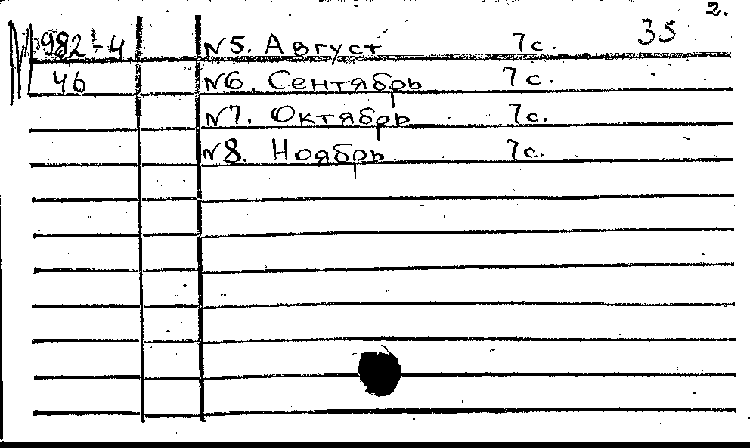 2.
М982-4 N5. Август 7с. 35
46 N6. Сентябрь 7с.
N7. Октябрь 7с.
N8. Ноябрь 7с.